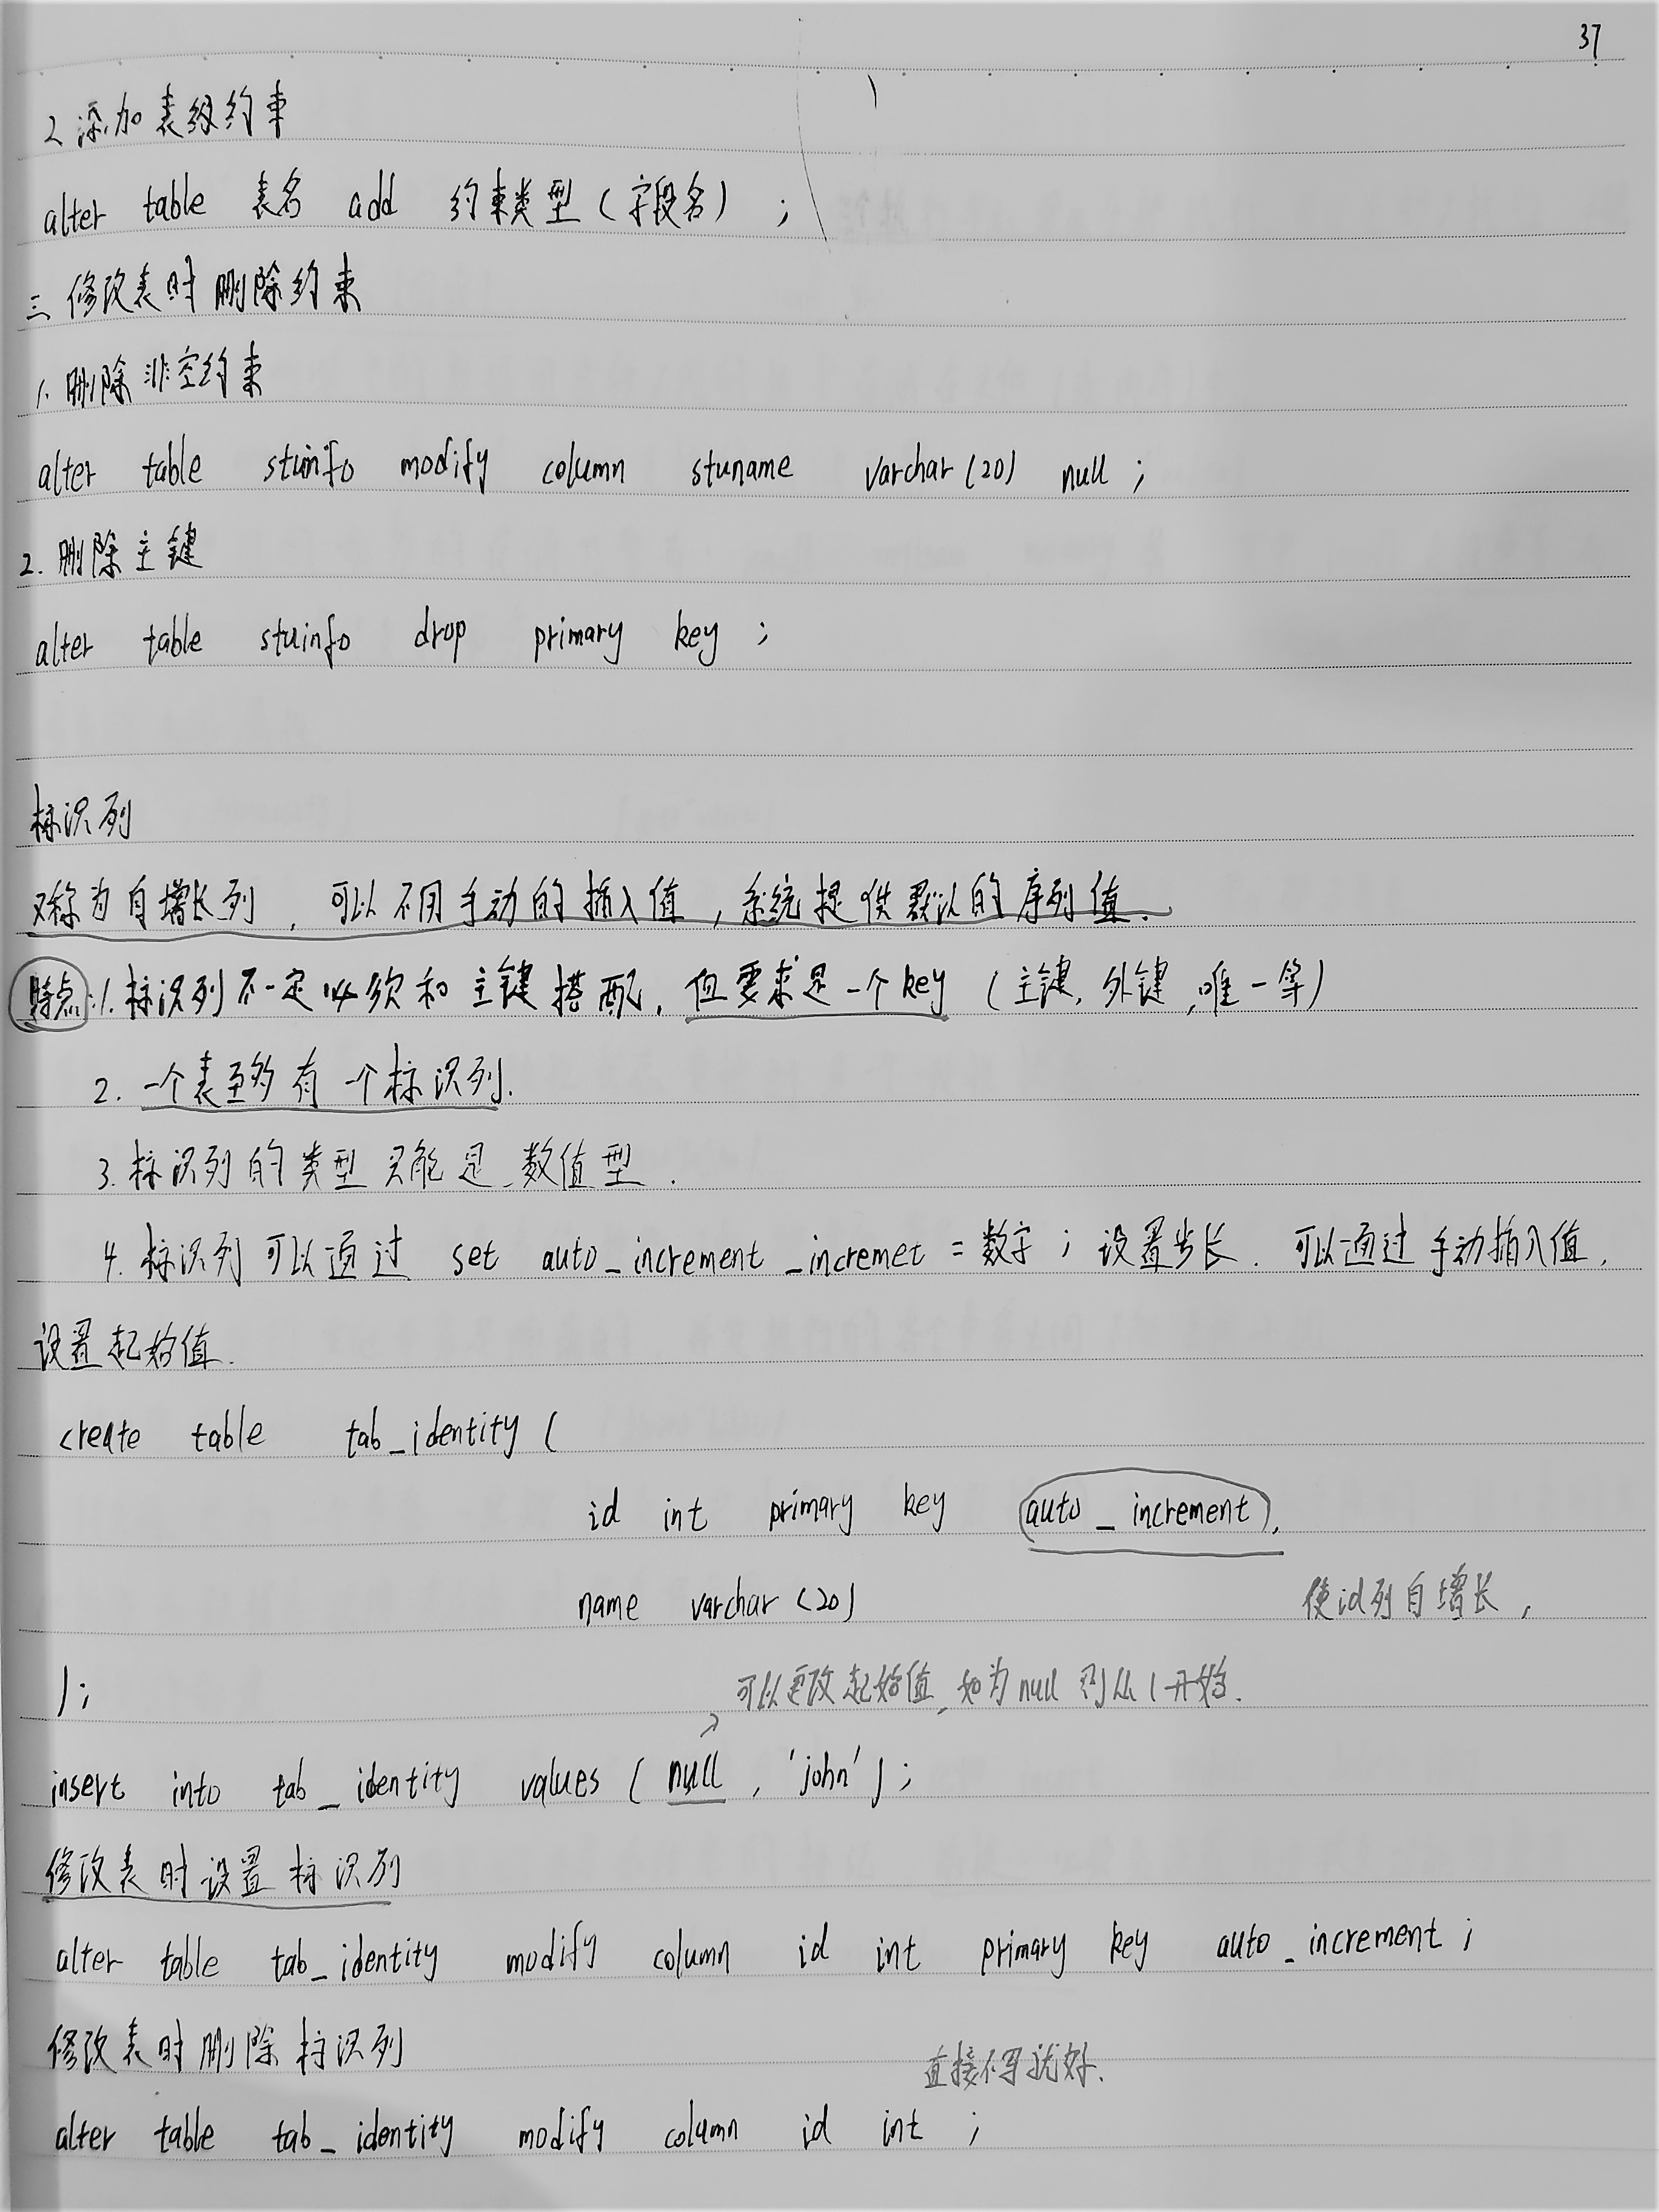 37
2 添加表级约束
alter table 表名 add 约束类型（字段名）;
三 修改表时删除约束
1. 删除非空约束
alter table stuinfo modify column stuname varchar(20) null ;
2. 删除主键
alter table stuinfo drop primary key ;
标识列
又称为自增长列，可以不用手动的插入值，系统提供默认的序列值.
特点:1.标识列不一定必须和主键搭配，但要求是一个key（主键，外键，唯一等）
2. 一个表至多有一个标识列.
3. 标识列的类型只能是数值型.
4. 标识列可以通过 set auto_increment_incremet = 数字 ; 设置步长. 可以通过手动插入值，
设置起始值.
create table tab_identity (
id int primary key auto_increment,
name varchar (20)
使id列自增长，
);
可以更改起始值，如为null则从1开始.
insert into tab_identity values ( null , 'john' ) ;
修改表时设置标识列
alter table tab_identity modify column id int primary key auto_increment ;
修改表时删除标识列
直接不写就好.
alter table tab_identity modify column id int ;